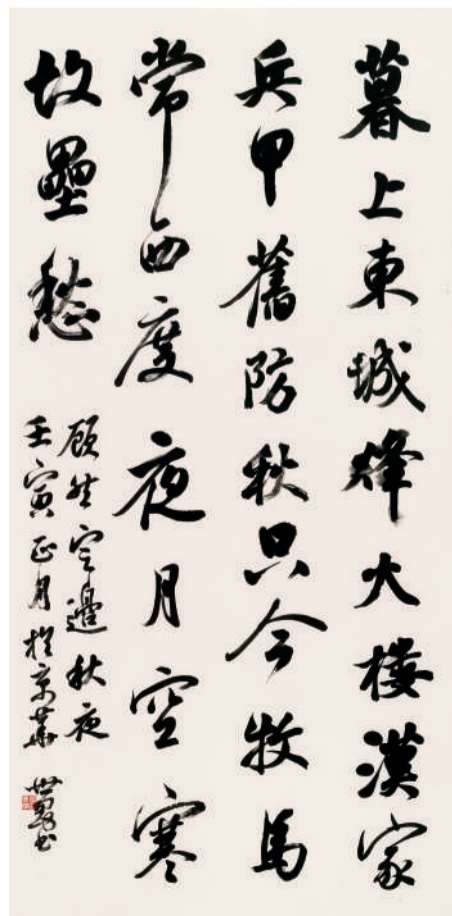 暮上東城烽火樓漢家
兵甲舊防秋只今牧馬
常西度夜月空寒
故壘愁
邊秋夜
壬寅正月於京華